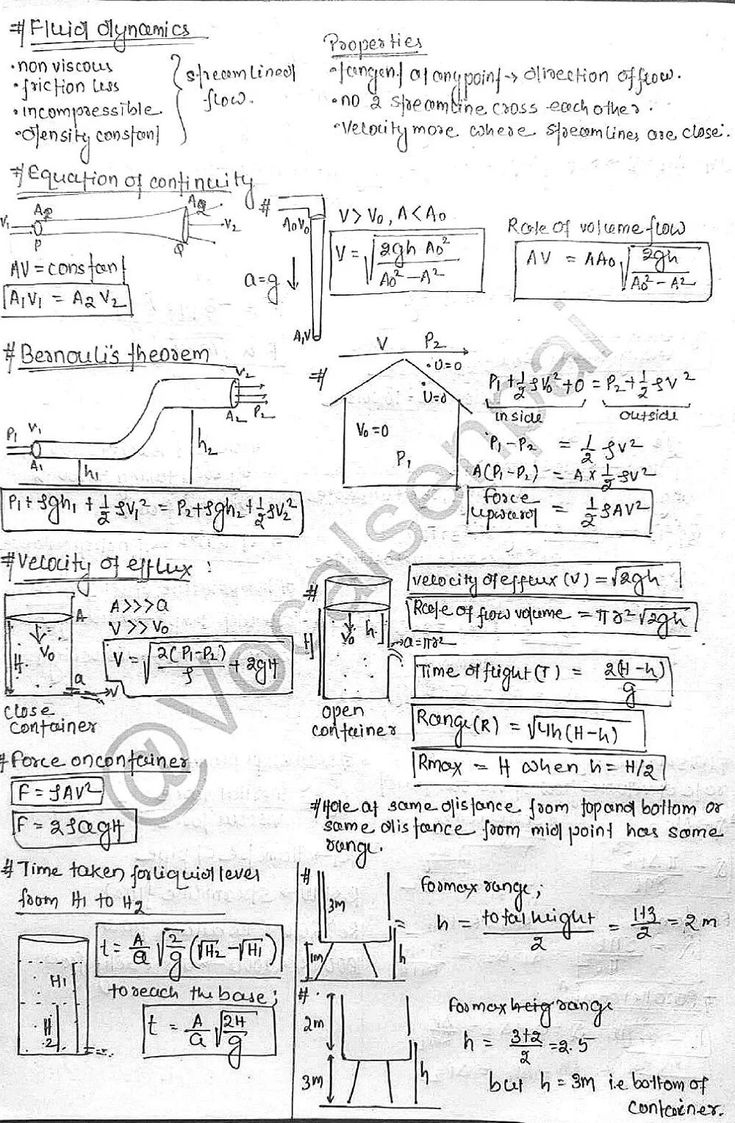 # Fluid dynamics
• non viscous
• friction less
• incompressible
• density constant
streamlined flow.
Properties
• tangent at any point → direction of flow.
• no 2 streamline cross each other.
• velocity more where streamlines are close.
# Equation of continuity
V₁ A₁ P A₂ Q V₂
AV = constant
A₁V₁ = A₂V₂
# A₀V₀
a=g ↓
A,V
V > V₀, A < A₀
V = √(2gh A₀² / A₀² − A²)
Rate of volume flow
AV = AA₀ √(2gh / A₀² − A²)
# Bernouli's theorem
P₁ V₁ A₁ h₁ h₂ V₂ A₂ P₂
P₁ + ρgh₁ + ½ρV₁² = P₂ + ρgh₂ + ½ρV₂²
# V P₂
• U=0
• U=0
V₀ = 0
P₁
P₁ + ½ρV₀² + 0 = P₂ + ½ρV²
inside outside
P₁ − P₂ = ½ρV²
A(P₁ − P₂) = A × ½ρV²
Force upward = ½ρAV²
# Velocity of efflux :
A H V₀ a V
A >>> a
V >> V₀
V = √(2(P₁−P₂)/ρ + 2gH)
close container
# H V₀ h a = πr²
open container
velocity of efflux (V) = √2gh
Rate of flow volume = πr² √2gh
Time of flight (T) = 2(H−h)/g
Range (R) = √4h(H−h)
Rmax = H when h = H/2
# Force on container
F = ρAV²
F = 2ρagH
# Hole at same distance from top and bottom or
same distance from mid point has same
range.
# Time taken for liquid level
from H₁ to H₂
H₁ H₂
t = A/a √(2/g) (√H₂ − √H₁)
to reach the base;
t = A/a √(2H/g)
# 3m 1m h
For max range;
h = total height/2 = 1+3/2 = 2m
# 2m 3m h
For max range
h = 3+2/2 = 2.5
but h = 3m i.e bottom of
container.
@Vocalsenpai